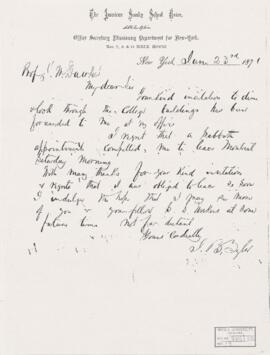 The American Sunday School Union,
Office Secretary Missionary Department for New-York,
Nos. 7, 8 & 10 BIBLE HOUSE
New York June 23rd 1871
Prof J W Dawson
My dear Sir
Your kind invitation to dine
& look through the College buildings has been
forwarded to me at my office
I regret that a Sabbath
appointment compelled me to leave Montreal
Saturday Morning
With many thanks for your kind invitation
& regrets that I was obliged to leave so soon
I indulge the hope that I may see more
of you & your fellow S. S. Workers at some
future time not far distant
Yours Cordially